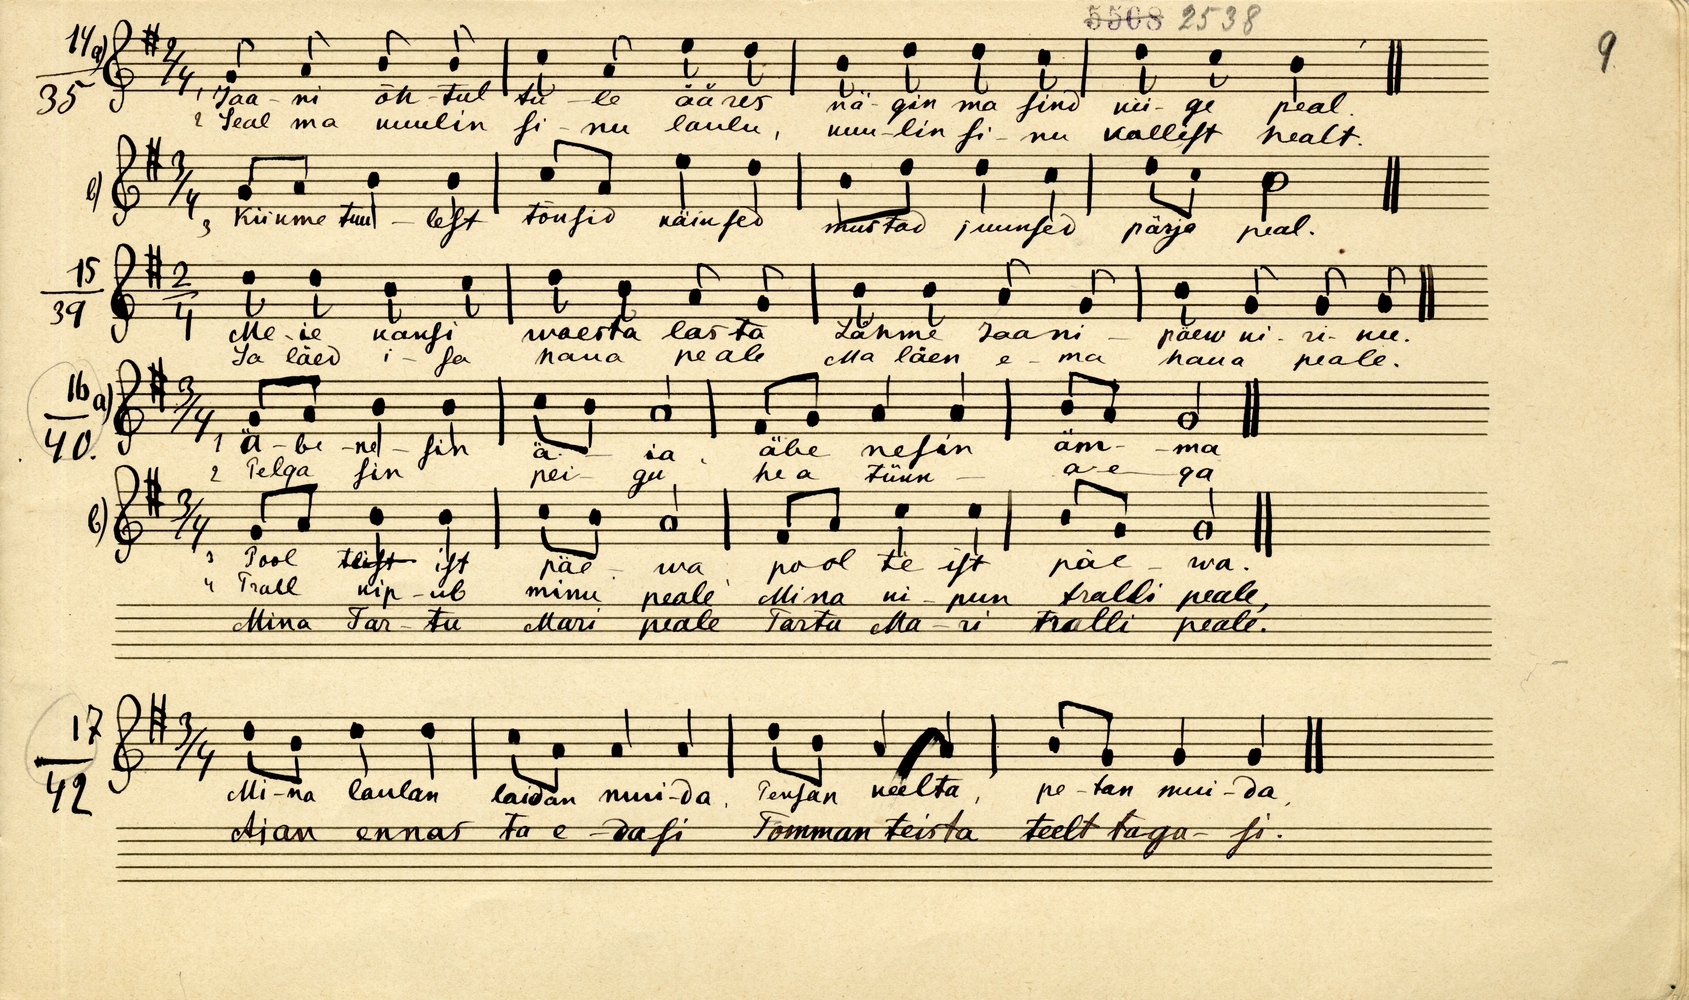 5508 2538
9
14 a)
35
2/4
1 Jaa-ni õh-tul tu-le ääres nä-gin ma sind kii-ge peal.
2 Seal ma kuulin si-nu laulu, kuu-lin si-nu kallist healt.
b)
3/4
3 Kümme tuul-lest tõusid näinsed mustad juunsed pärja peal.
15
39
2/4
Me-ie kaksi waesta lasta Lähme Jaani-päew ni-ri-nu.
Sa läed i-sa haua peale Ma läen e-ma haua peale.
16 a)
40.
3/4
1 ä-be-ne-sin ä-ia, äbe nesin äm-ma
2 Pelga sin pei-gu hea tüun- a-e-ga
b)
3/4
3 Pool teist ist päe-wa pool te ist päe-wa.
4 Trall kip-ub minu peale Mina ki-pun tralli peale,
Mina Tar-tu Mari peale Tartu Ma-ri tralli peale.
17
42
3/4
Mi-na laulan laidan mui-da, Peksan keelta, pe-tan mui-da,
Ajan ennas ta e-dasi Tomman teista teelt taga-si.